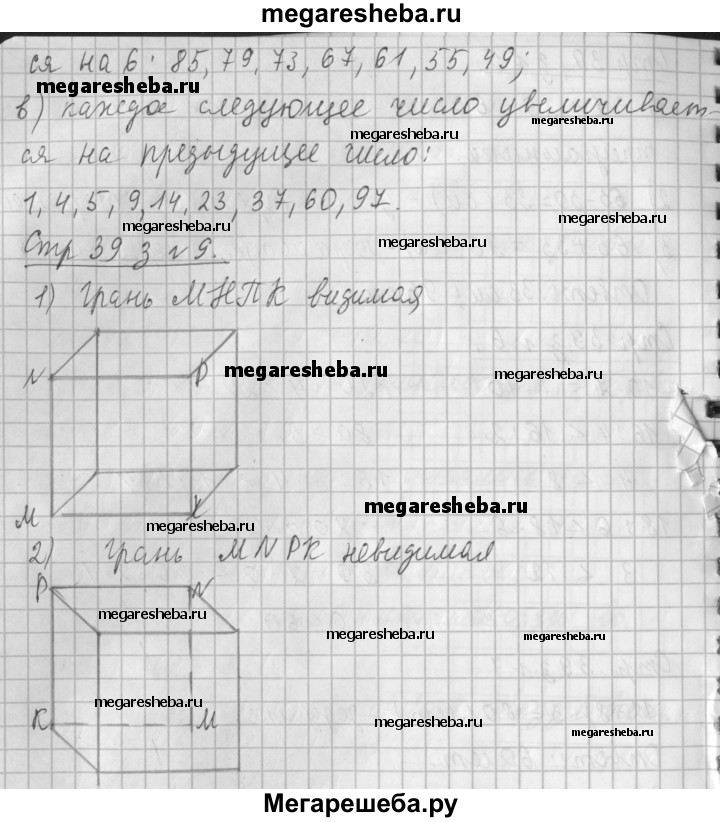 megaresheba.ru
ся на 6: 85, 79, 73, 67, 61, 55, 49;
megaresheba.ru
в) каждое следующее число увеличивает-
megaresheba.ru
megaresheba.ru
ся на предыдущее число:
1, 4, 5, 9, 14, 23, 37, 60, 97.
megaresheba.ru
megaresheba.ru
Стр 39 з №9.
megaresheba.ru
1) Грань МНПК видимая
N P
megaresheba.ru
megaresheba.ru
M K
megaresheba.ru
megaresheba.ru
2) Грань MNPK невидимая
P N
megaresheba.ru
megaresheba.ru
megaresheba.ru
megaresheba.ru
K M
megaresheba.ru
megaresheba.ru
Мегарешеба.ру